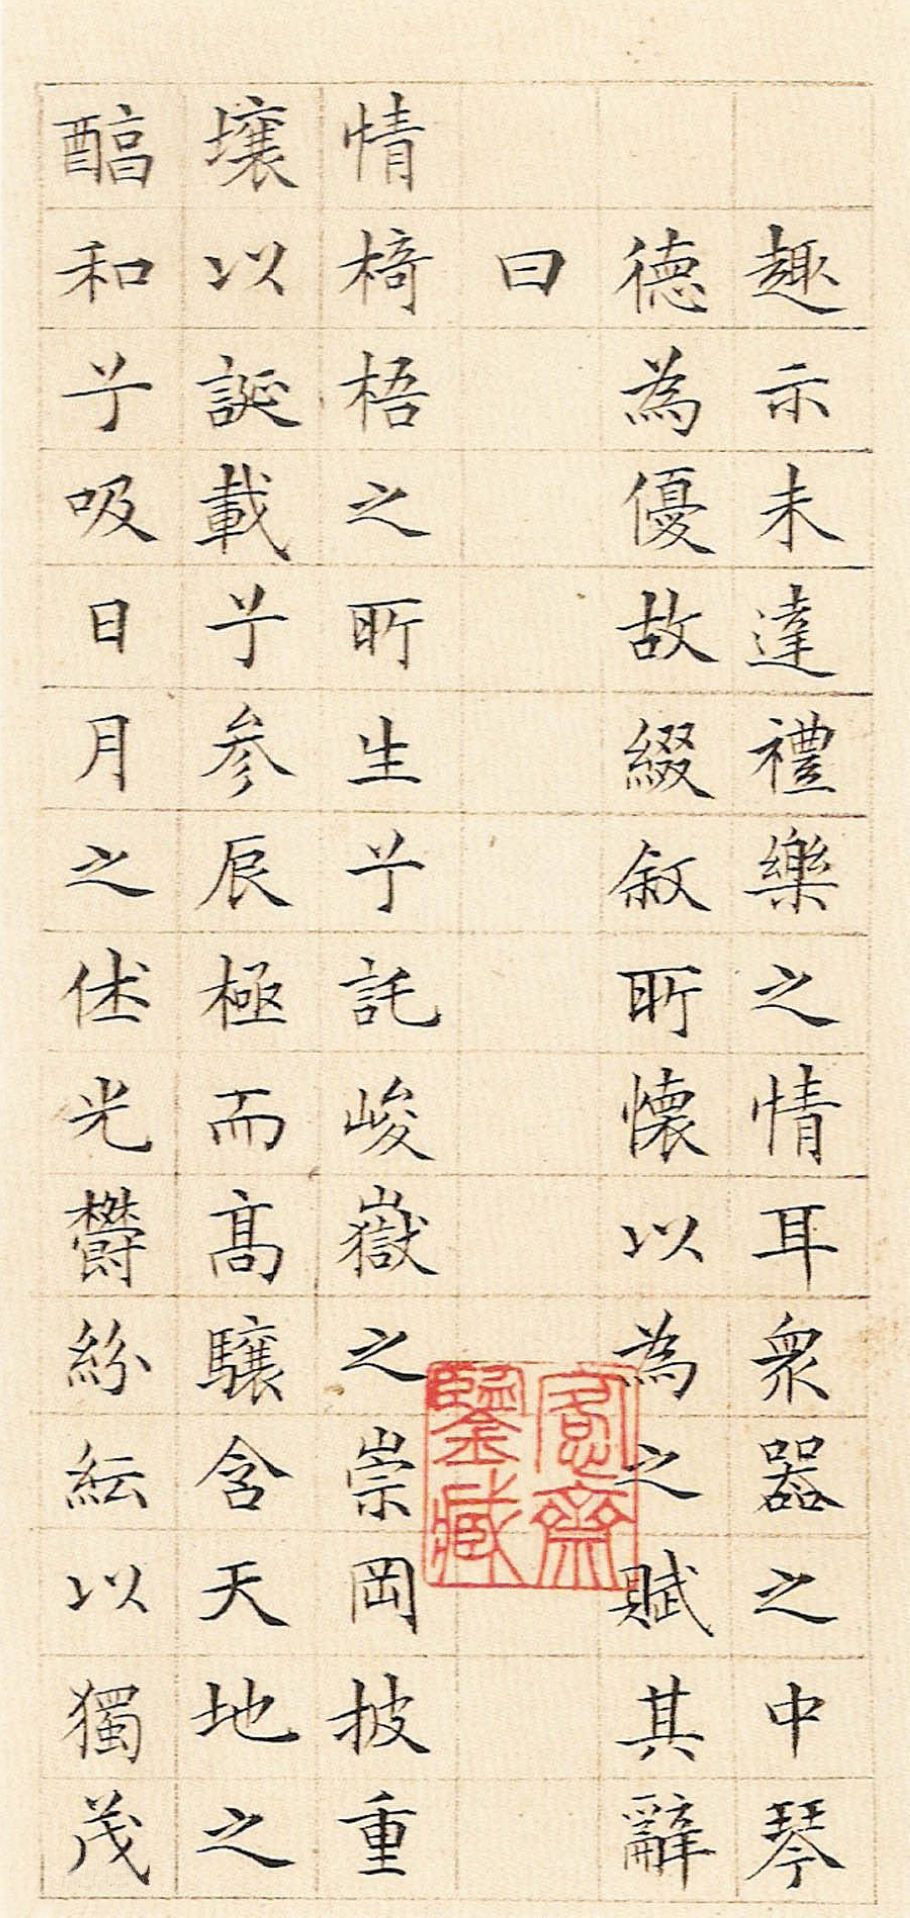 趣示未達禮樂之情耳眾器之中琴
德為優故綴敘所懷以為之賦其辭
曰
情椅梧之所生兮託峻嶽之崇岡披重
壤以誕載兮參辰極而高驤含天地之
醕和兮吸日月之休光鬱紛紜以獨茂
愙齋
鑒藏